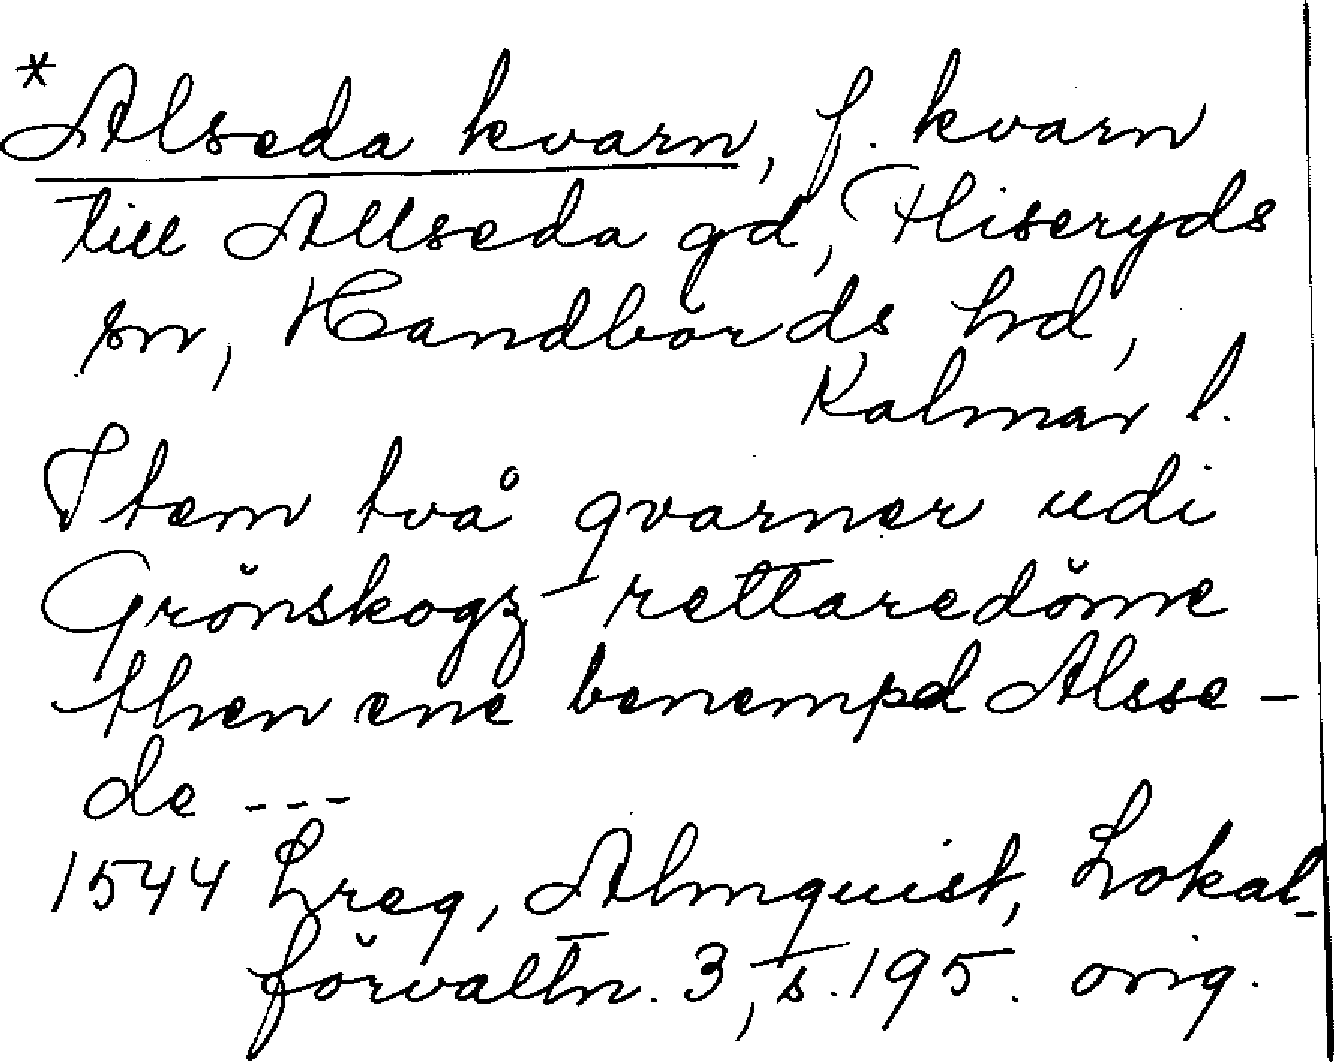 *Alseda kvarn, f. kvarn
till Allseda gd, Fliseryds
sn, Handbörds hd,
Kalmar l.
Item två qvarner udi
Grönskogz rettaredöme
then ene benempd Alsse-
de ---
1544 Lreg, Almquist, Lokal-
förvaltn. 3, s. 195. orig.